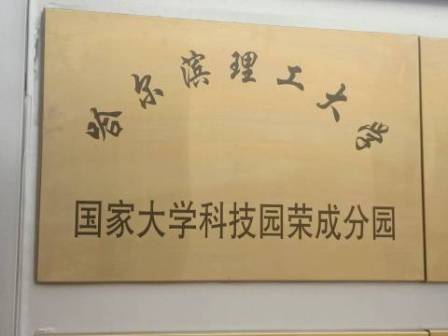 哈尔滨理工大学
国家大学科技园荣成分园